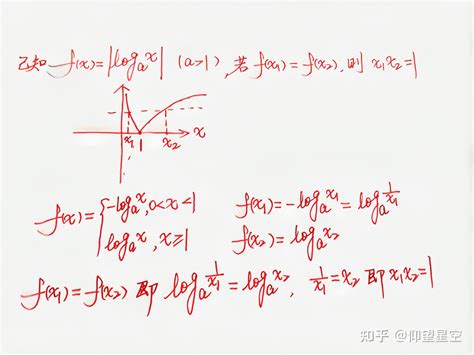 已知 f(x)=|logₐx| (a>1), 若 f(x₁)=f(x₂), 则 x₁x₂=1
x₁ 1 x₂ x
f(x)={-logₐx, 0<x<1 f(x₁)=-logₐx₁=logₐ(1/x₁)
logₐx, x≥1 f(x₂)=logₐx₂
f(x₁)=f(x₂) 即 logₐ(1/x₁)=logₐx₂, 1/x₁=x₂ 即 x₁x₂=1
知乎 @仰望星空